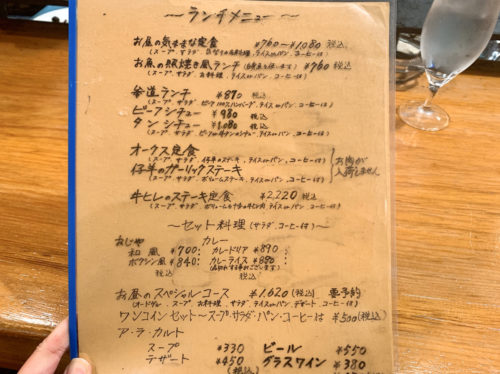 ~ランチメニュー~
お昼の気ままな定食 ¥960~¥1,080 税込
(スープ サラダ お料理 ライスorパン コーヒー付)
お魚の 焼き風ランチ ¥960 税込
(スープ サラダ お料理 ライスorパン コーヒー付)
ランチ ¥870 税込
(スープ サラダ ハンバーグ ライスorパン コーヒー付)
ビーフシチュー ¥980 税込
タンシチュー ¥1,080 税込
(スープ サラダ シチュー ライスorパン コーヒー付)
オークス定食
(スープ サラダ 仔羊のステーキ ライスorパン コーヒー付)
仔羊のガーリックステーキ
(スープ サラダ ボリュームステーキ ライスorパン コーヒー付)
お肉が
入荷しません
牛ヒレのステーキ定食 ¥2,220 税込
(スープ サラダ ライスorパン コーヒー付)
~セット料理(サラダ、コーヒー付)~
おじや カレー
和風 ¥700 カレードリア ¥890
ボクシン風 ¥840 カレーライス ¥880
税込 税込
お昼のスペシャルコース ¥1,620(税込) 要予約
(オードヴル スープ お料理 サラダ ライスorパン デザート コーヒー付)
ワンコインセット~スープ.サラダ.パン.コーヒー付 ¥500(税込)
ア・ラ・カルト
スープ ¥330 ビール ¥550
デザート ¥450 グラスワイン ¥380
(税込)